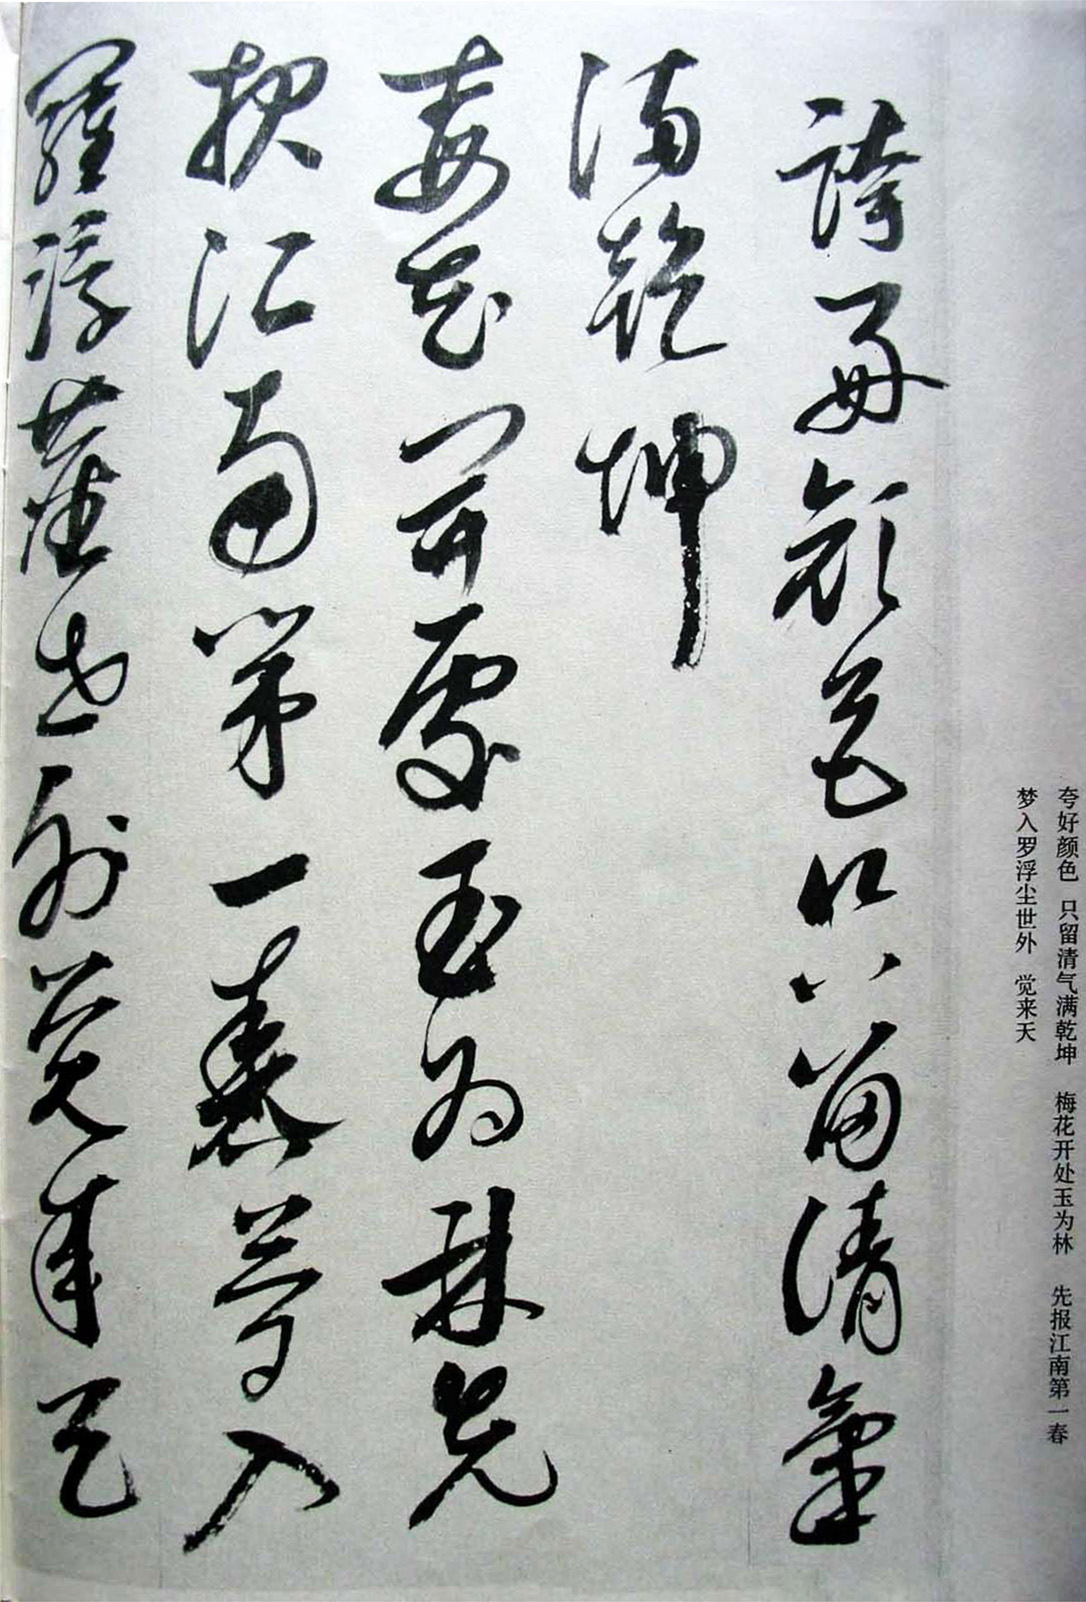 夸好颜色 只留清气满乾坤 梅花开处玉为林 先报江南第一春
梦入罗浮尘世外 觉来天
誇好顔色只留清氣
満乾坤
梅花開處玉為林先
報江南第一春夢入
羅浮塵世外覺来天